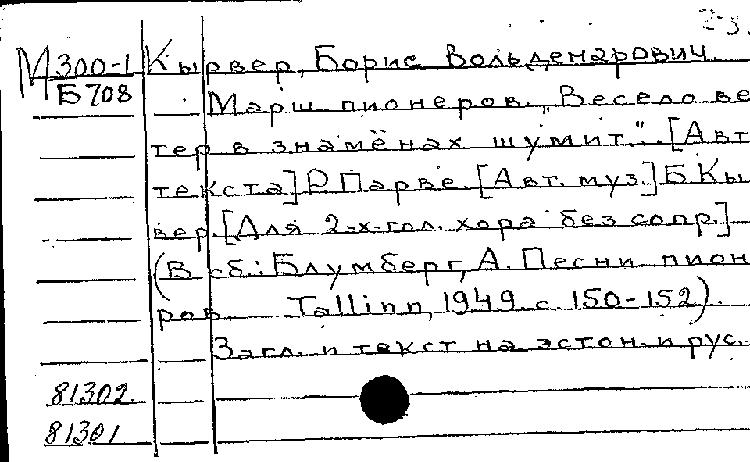 М 300-1 Кырвер, Борис Вольдемарович.
Б 708
Марш пионеров. „Весело ве
тер в знамёнах шумит.". [Авт
текста] Р. Парве. [Авт. муз.] Б Кы
вер. [Для 2-х-гол. хора без сопр.]
(В сб.: Блумберг, А. Песни пион
ров. Tallinn, 1949 с. 150-152).
Загл. и текст на эстон. и рус.
81302.
81301